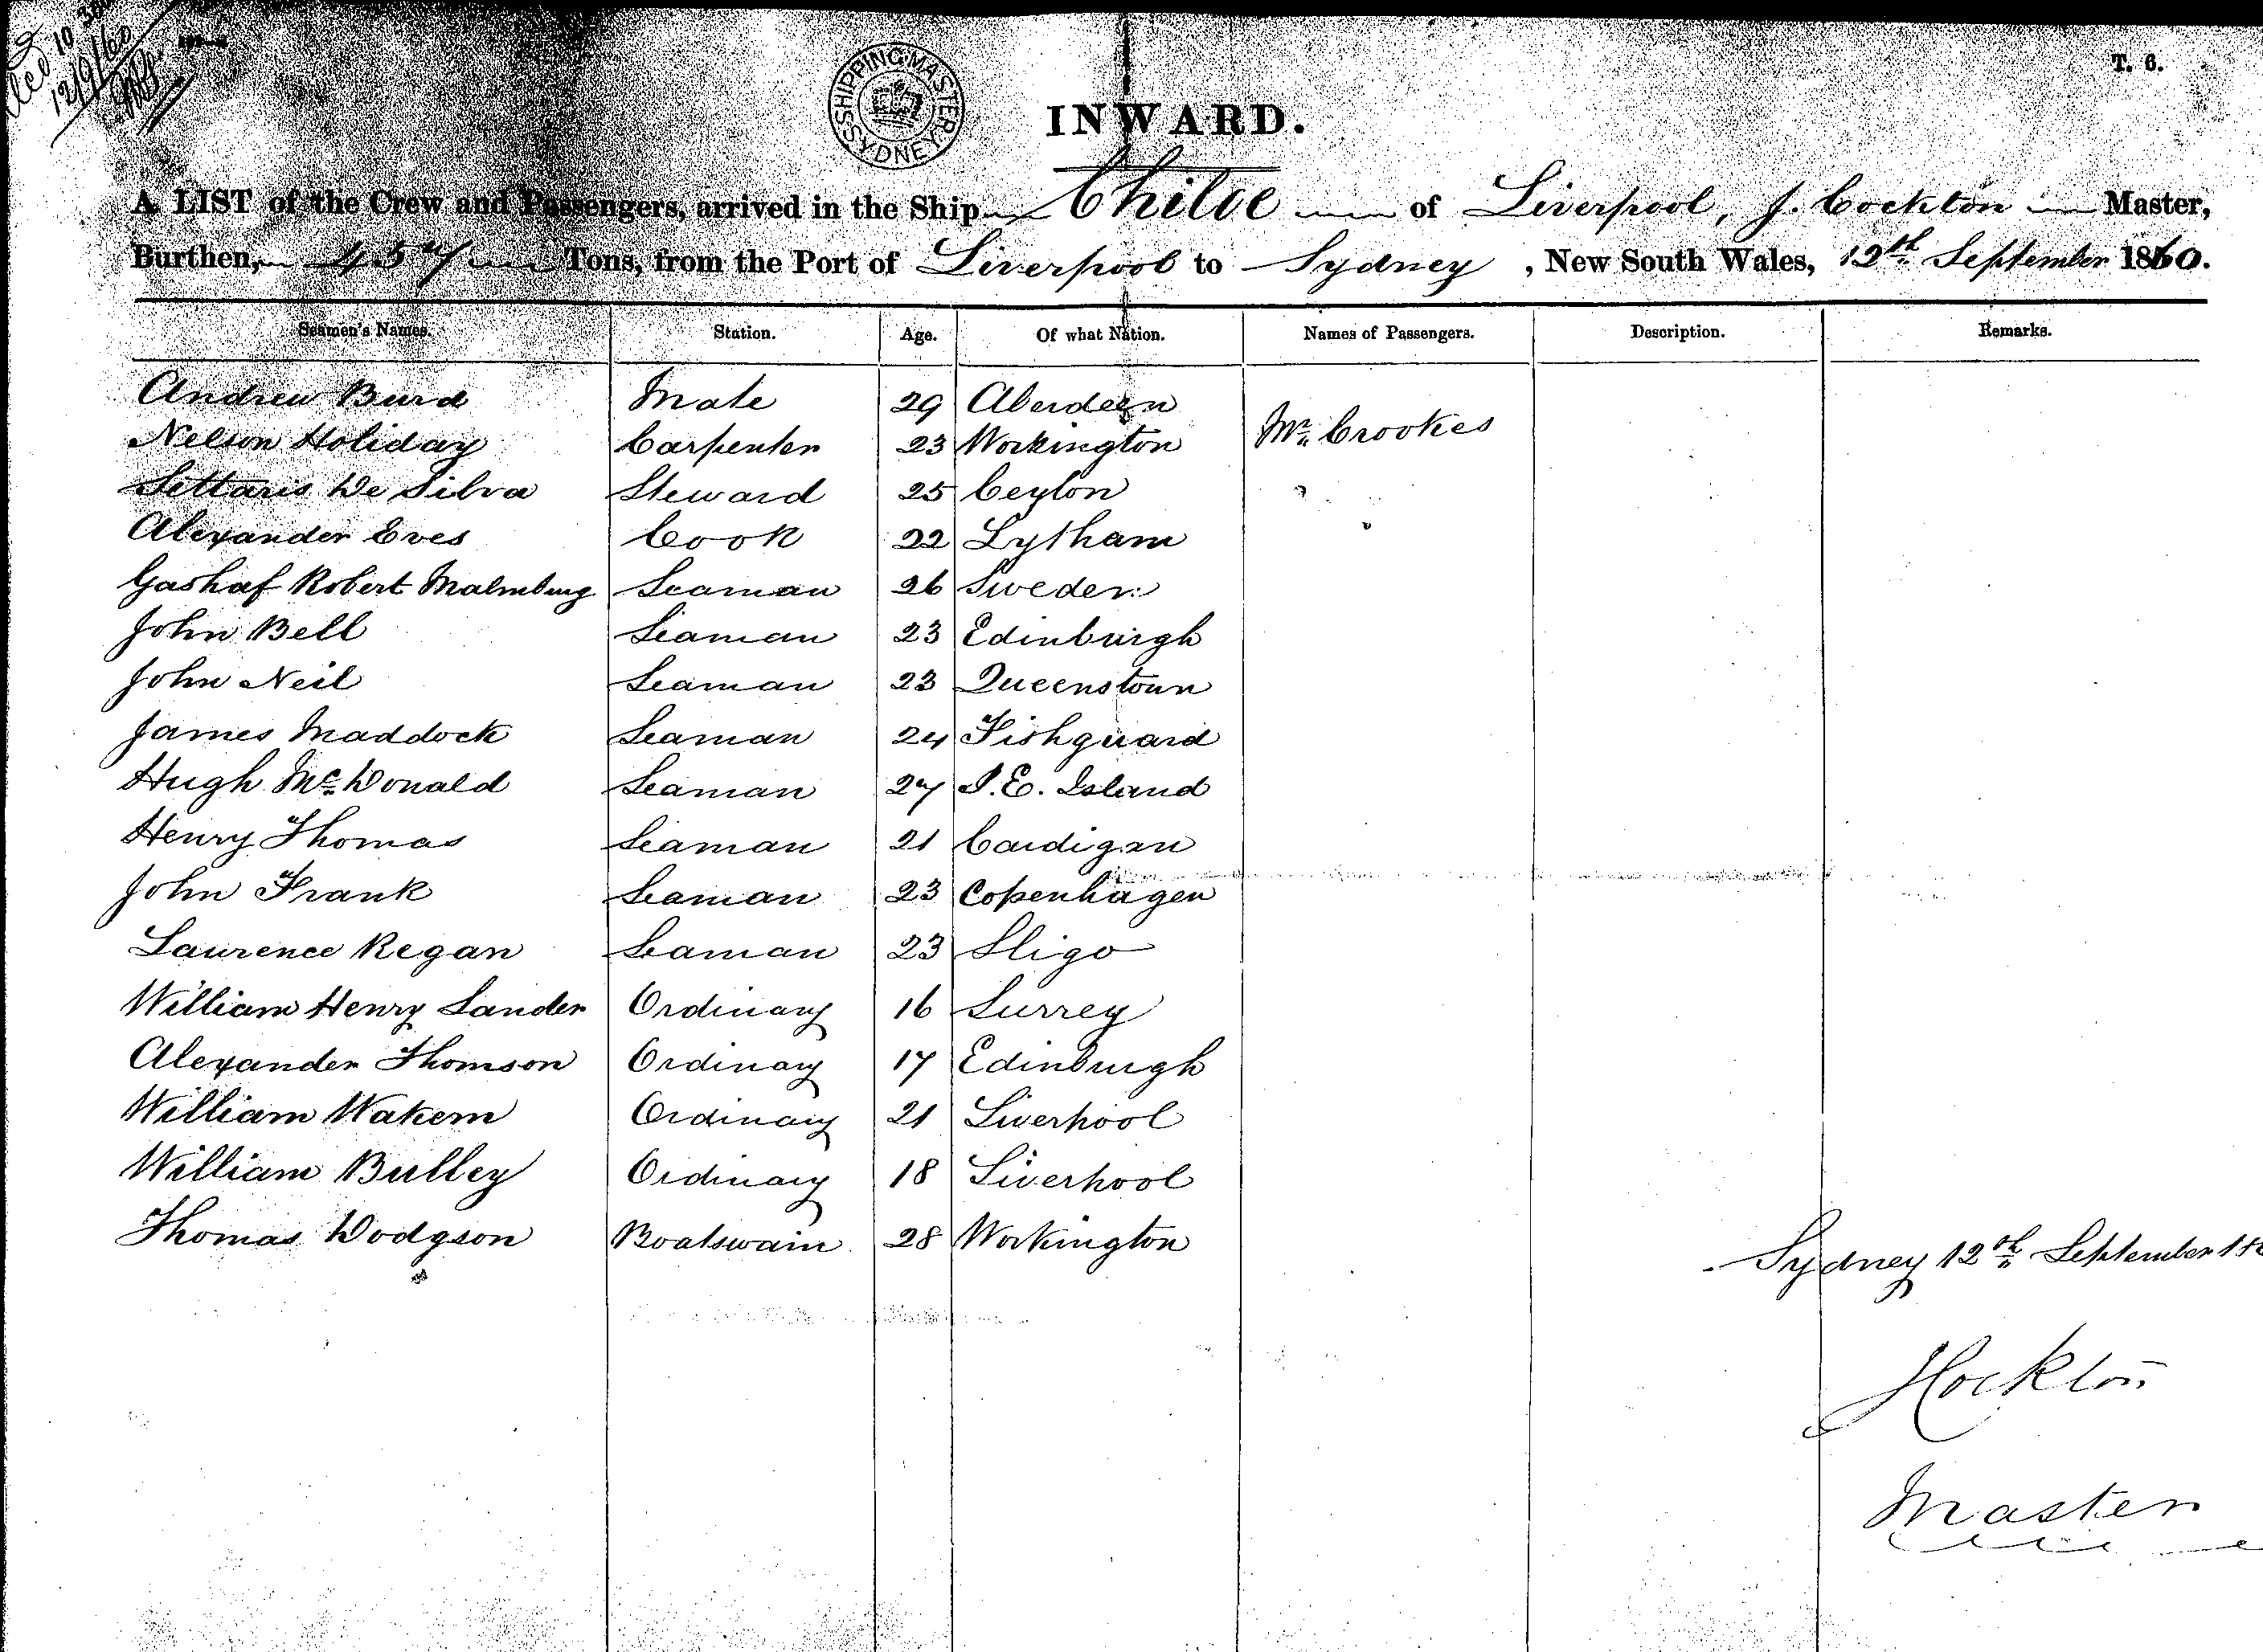 12/9/60
T. 6.
SHIPPING MASTER SYDNEY
INWARD.
A LIST of the Crew and Passengers, arrived in the Ship Chiloe of Liverpool, J. Cockton Master,
Burthen, 457 Tons, from the Port of Liverpool to Sydney, New South Wales, 12th September 1860.
Seamen's Names. Station. Age. Of what Nation. Names of Passengers. Description. Remarks.
Andrew Burd Mate 29 Aberdeen
Mr. Crookes
Nelson Holiday Carpenter 23 Workington
Settaris De Silva Steward 25 Ceylon
Alexander Eves Cook 22 Lytham
Gashaf Robert Malmburg Seaman 26 Sweden
John Bell Seaman 23 Edinburgh
John Neil Seaman 23 Queenstown
James Maddock Seaman 24 Fishguard
Hugh McDonald Seaman 27 P.E. Island
Henry Thomas Seaman 21 Cardigan
John Frank Seaman 23 Copenhagen
Laurence Regan Seaman 23 Sligo
William Henry Lander Ordinary 16 Surrey
Alexander Thomson Ordinary 17 Edinburgh
William Wakem Ordinary 21 Liverpool
William Bulley Ordinary 18 Liverpool
Thomas Dodgson Boatswain 28 Workington
Sydney 12th September 18
JCockton
Master